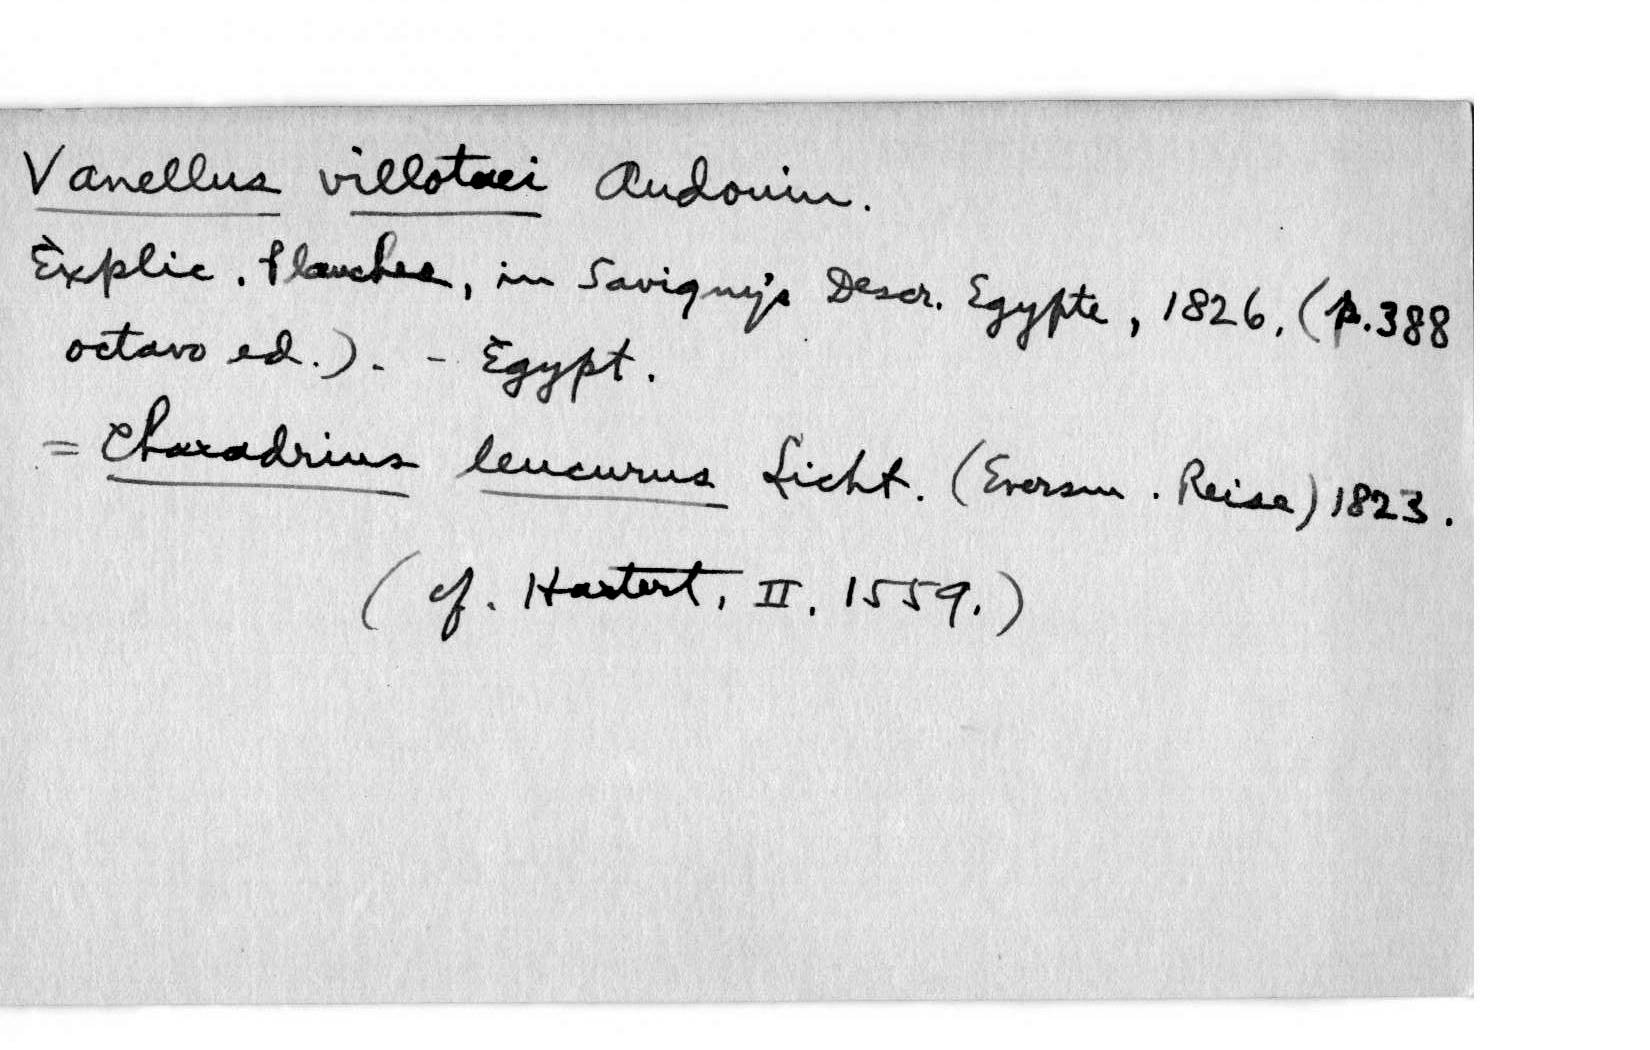 Vanellus villotaei Audouin.
Explic. Planches, in Savigny's Descr. Egypte, 1826. (p. 388
octavo ed.). - Egypt.
= Charadrius leucurus Licht. (Eversm. Reise) 1823.
(cf. Hartert, II. 1559.)